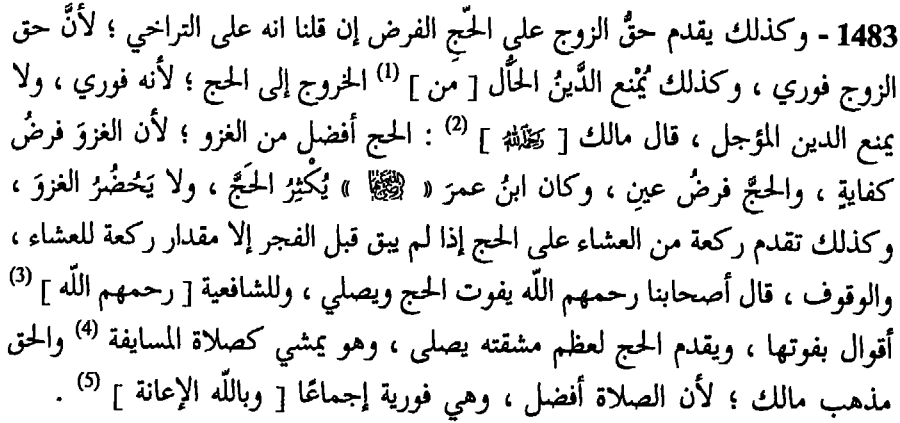 1483 - وكذلك يقدم حقُّ الزوج على الحَجِّ الفرض إن قلنا انه على التراخي ؛ لأنَّ حق
الزوج فوري ، وكذلك يُمْنع الدَّينُ الحالُّ [ من ] (1) الخروج إلى الحج ؛ لأنه فوري ، ولا
يمنع الدين المؤجل ، قال مالك [ رَحِمَهُ اللهُ ] (2) : الحج أفضل من الغزو ؛ لأن الغزوَ فرضُ
كفايةٍ ، والحجَّ فرضُ عينٍ ، وكان ابنُ عمرَ « رضي الله عنهما » يُكْثِرُ الحَجَّ ، ولا يَحُضُرُ الغزوَ ،
وكذلك تقدم ركعة من العشاء على الحج إذا لم يبق قبل الفجر إلا مقدار ركعة للعشاء ،
والوقوف ، قال أصحابنا رحمهم اللّه يفوت الحج ويصلي ، وللشافعية [ رحمهم اللّه ] (3)
أقوال بفوتها ، ويقدم الحج لعظم مشقته يصلى ، وهو يمشي كصلاة المسايفة (4) والحق
مذهب مالك ؛ لأن الصلاة أفضل ، وهي فورية إجماعًا [ وباللّه الإعانة ] (5) .